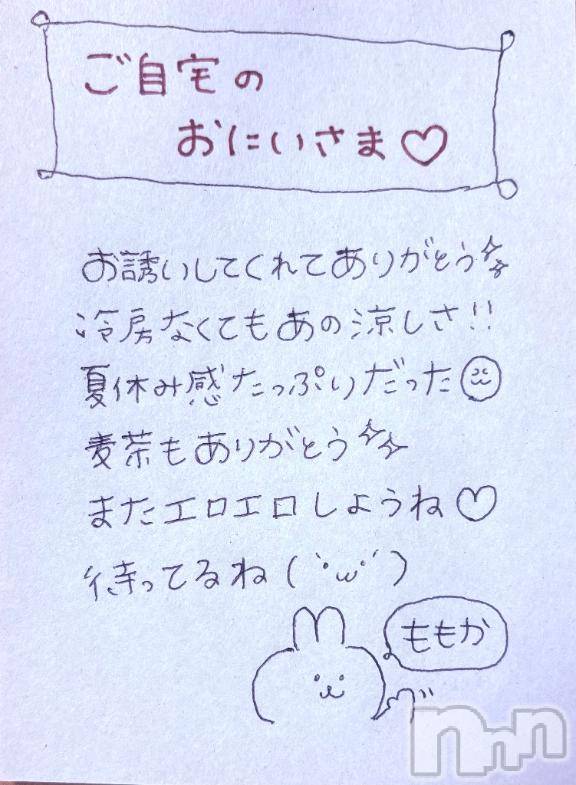 ご自宅の
おにいさま♡
お誘いしてくれてありがとう
冷房なくてもあの涼しさ!!
夏休み感たっぷりだった
麦茶もありがとう
またエロエロしようね♡
待ってるね(`･ω･´)
ももか
nnn